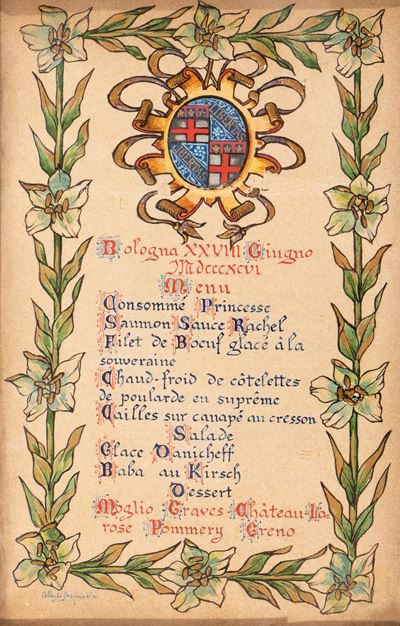 LIBERTAS
LIBERTAS
Bologna XXVIII Giugno
MDCCCXCVI
Menu
Consommé Princesse
Saumon Sauce Rachel
Filet de Boeuf glacé à la
souveraine
Chaud-froid de côtelettes
de poularde en suprême
Cailles sur canapé au cresson
Salade
Glace Danicheff
Baba au Kirsch
Dessert
Moglio Graves Château La-
rose Pommery Greno